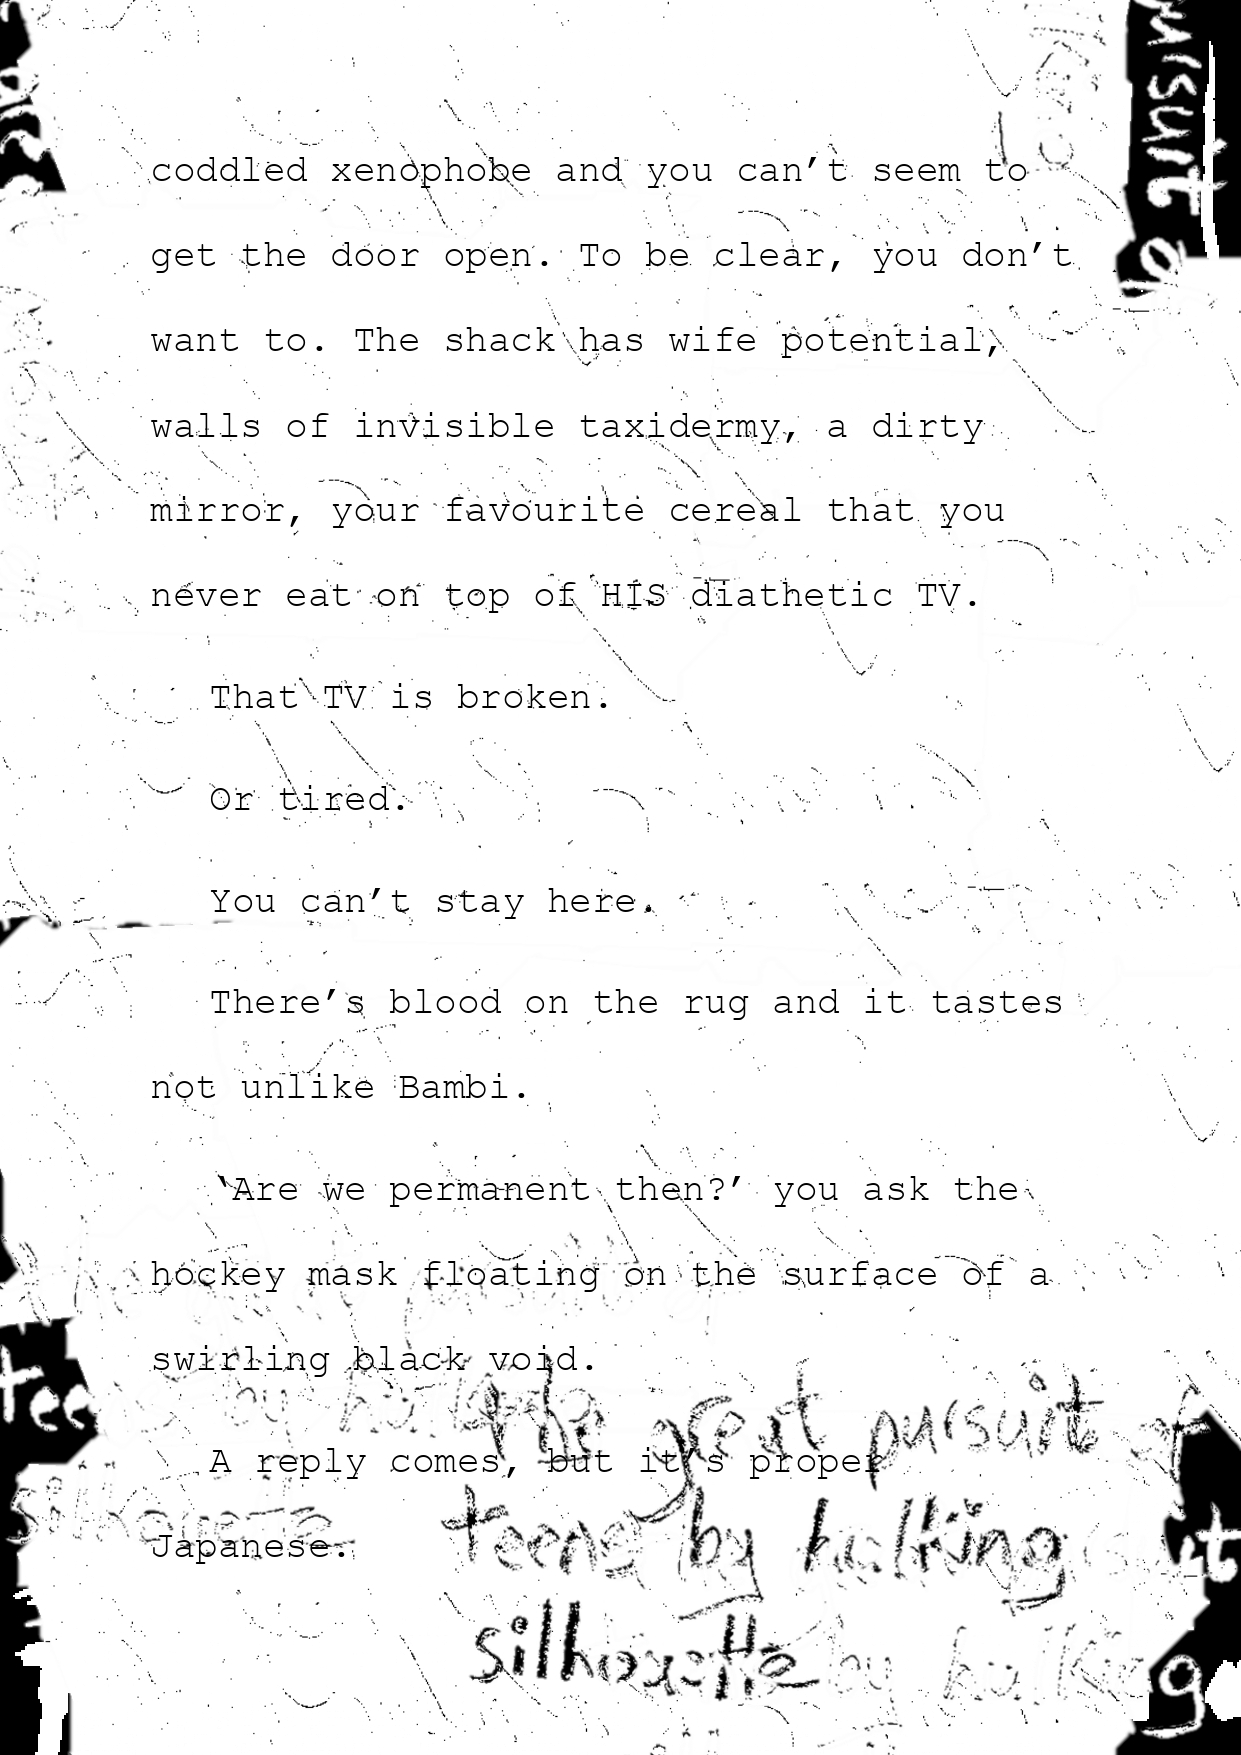 coddled xenophobe and you can’t seem to
get the door open. To be clear, you don’t
want to. The shack has wife potential,
walls of invisible taxidermy, a dirty
mirror, your favourite cereal that you
never eat on top of HIS diathetic TV.
That TV is broken.
Or tired.
You can’t stay here.
There’s blood on the rug and it tastes
not unlike Bambi.
‘Are we permanent then?’ you ask the
hockey mask floating on the surface of a
swirling black void.
A reply comes, but it’s proper
Japanese.
the great pursuit of
teens by hulking
silhouette